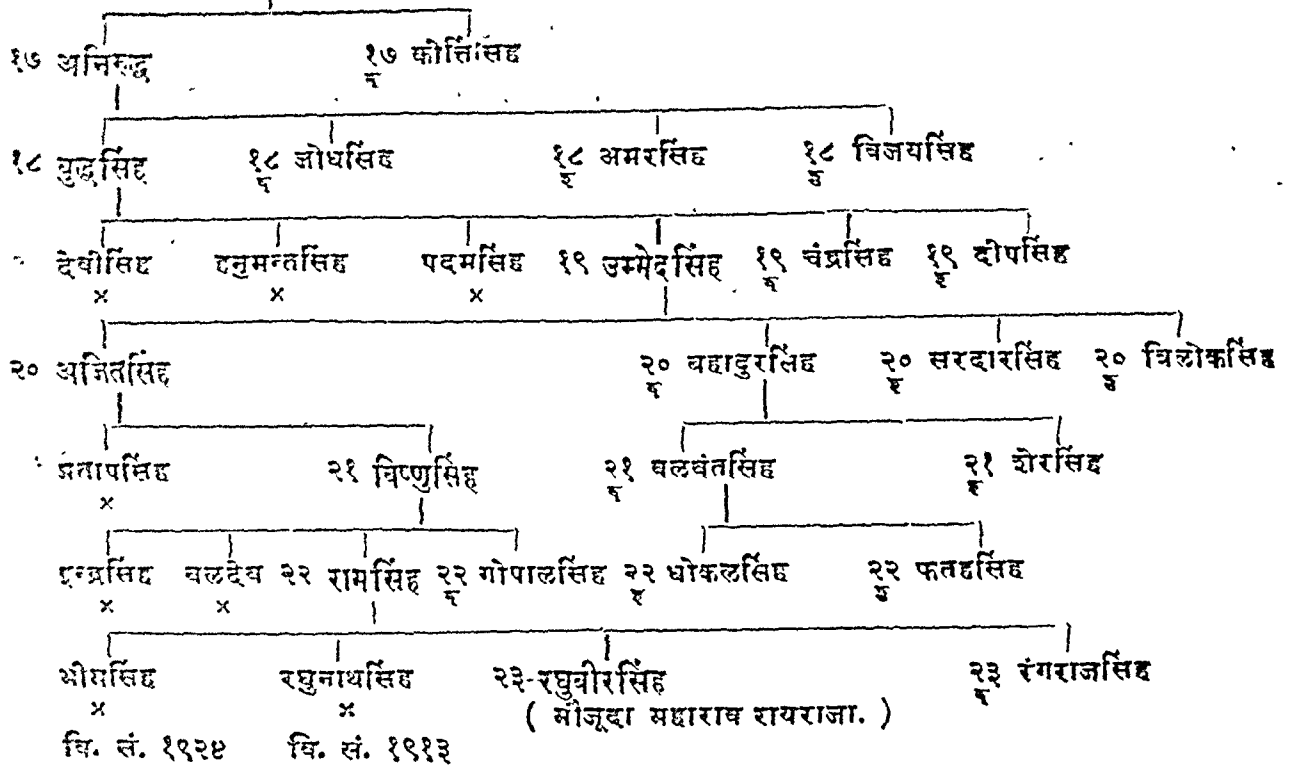 १७ अनिरुद्ध १७ कीर्त्तिसिंह
१८ बुद्धसिंह १८ जोधसिंह १८ अमरसिंह १८ विजयसिंह
देवीसिंह हनुमन्तसिंह पदमसिंह १९ उम्मेदसिंह १९ चंद्रसिंह १९ दीपसिंह
× × ×
२० अजितसिंह २० बहादुरसिंह २० सरदारसिंह २० त्रिलोकसिंह
प्रतापसिंह २१ विष्णुसिंह २१ बलवंतसिंह २१ शेरसिंह
×
इन्द्रसिंह बलदेव २२ रामसिंह २२ गोपालसिंह २२ धोकलसिंह २२ फतहसिंह
× ×
भीमसिंह रघुनाथसिंह २३-रघुवीरसिंह २३ रंगराजसिंह
× × ( मौजूदा महाराव रायराजा. )
वि. सं. १९२४ वि. सं. १९१३